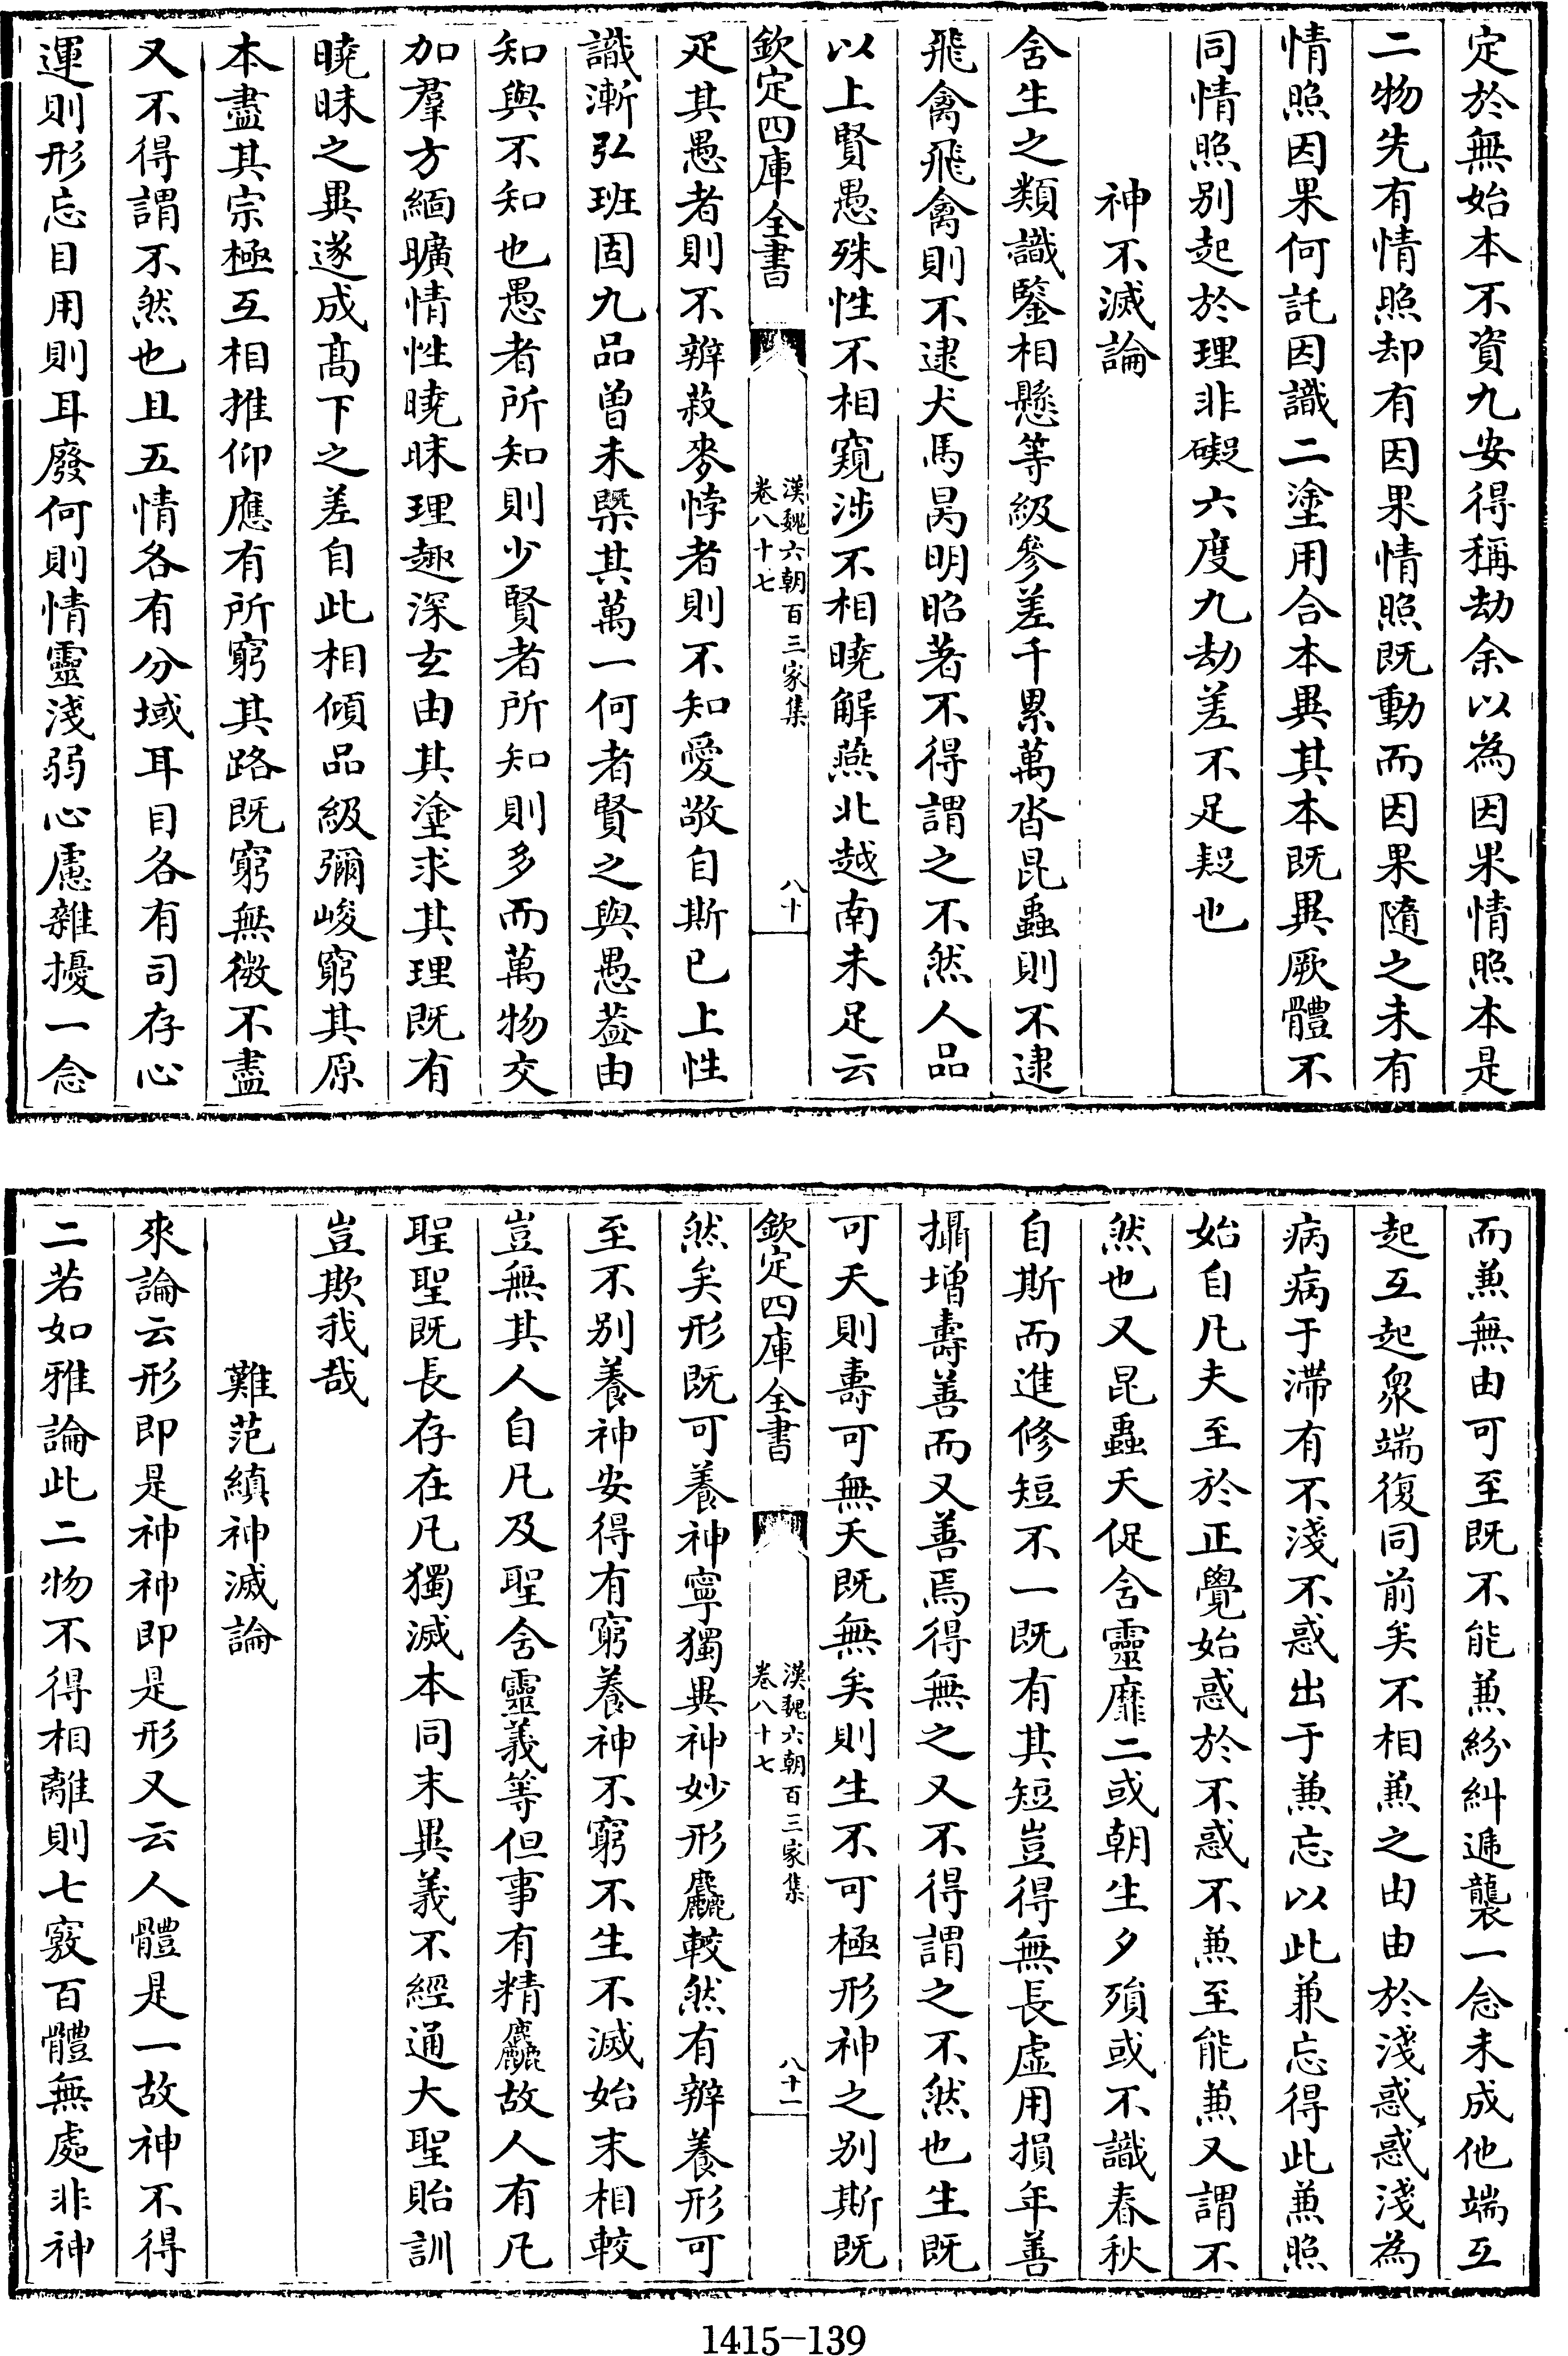 定於無始本不資九安得稱劫余以為因果情照本是
二物先有情照却有因果情照既動而因果隨之未有
情照因果何託因識二塗用合本異其本既異厥體不
同情照别起於理非礙六度九劫差不足疑也
神不滅論
含生之類識鑒相懸等級參差千累萬沓昆蟲則不逮
飛禽飛禽則不逮犬馬昺明昭著不得謂之不然人品
以上賢愚殊性不相窺涉不相曉解燕北越南未足云
欽定四庫全書
漢魏六朝百三家集
卷八十七
八十
疋其愚者則不辨菽麥悖者則不知愛敬自斯已上性
識漸弘班固九品曾未槩其萬一何者賢之與愚葢由
知與不知也愚者所知則少賢者所知則多而萬物交
加羣方緬曠情性曉昧理趣深玄由其塗求其理既有
曉昧之異遂成髙下之差自此相傾品級彌峻窮其原
本盡其宗極互相推仰應有所窮其路既窮無微不盡
又不得謂不然也且五情各有分域耳目各有司存心
運則形忘目用則耳廢何則情靈淺弱心慮雜擾一念
而兼無由可至既不能兼紛糾遞襲一念未成他端互
起互起衆端復同前矣不相兼之由由於淺惑惑淺為
病病于滯有不淺不惑出于兼忘以此兼忘得此兼照
始自凡夫至於正覺始惑於不惑不兼至能兼又謂不
然也又昆蟲夭促含靈靡二或朝生夕殞或不識春秋
自斯而進修短不一既有其短豈得無長虛用損年善
攝增壽善而又善焉得無之又不得謂之不然也生既
可夭則壽可無夭既無矣則生不可極形神之别斯既
欽定四庫全書
漢魏六朝百三家集
卷八十七
八十一
然矣形既可養神寧獨異神妙形麤較然有辨養形可
至不别養神安得有窮養神不窮不生不滅始末相較
豈無其人自凡及聖含靈義等但事有精麤故人有凡
聖聖既長存在凡獨滅本同末異義不經通大聖貽訓
豈欺我哉
難范縝神滅論
來論云形即是神神即是形又云人體是一故神不得
二若如雅論此二物不得相離則七竅百體無處非神
1415-139